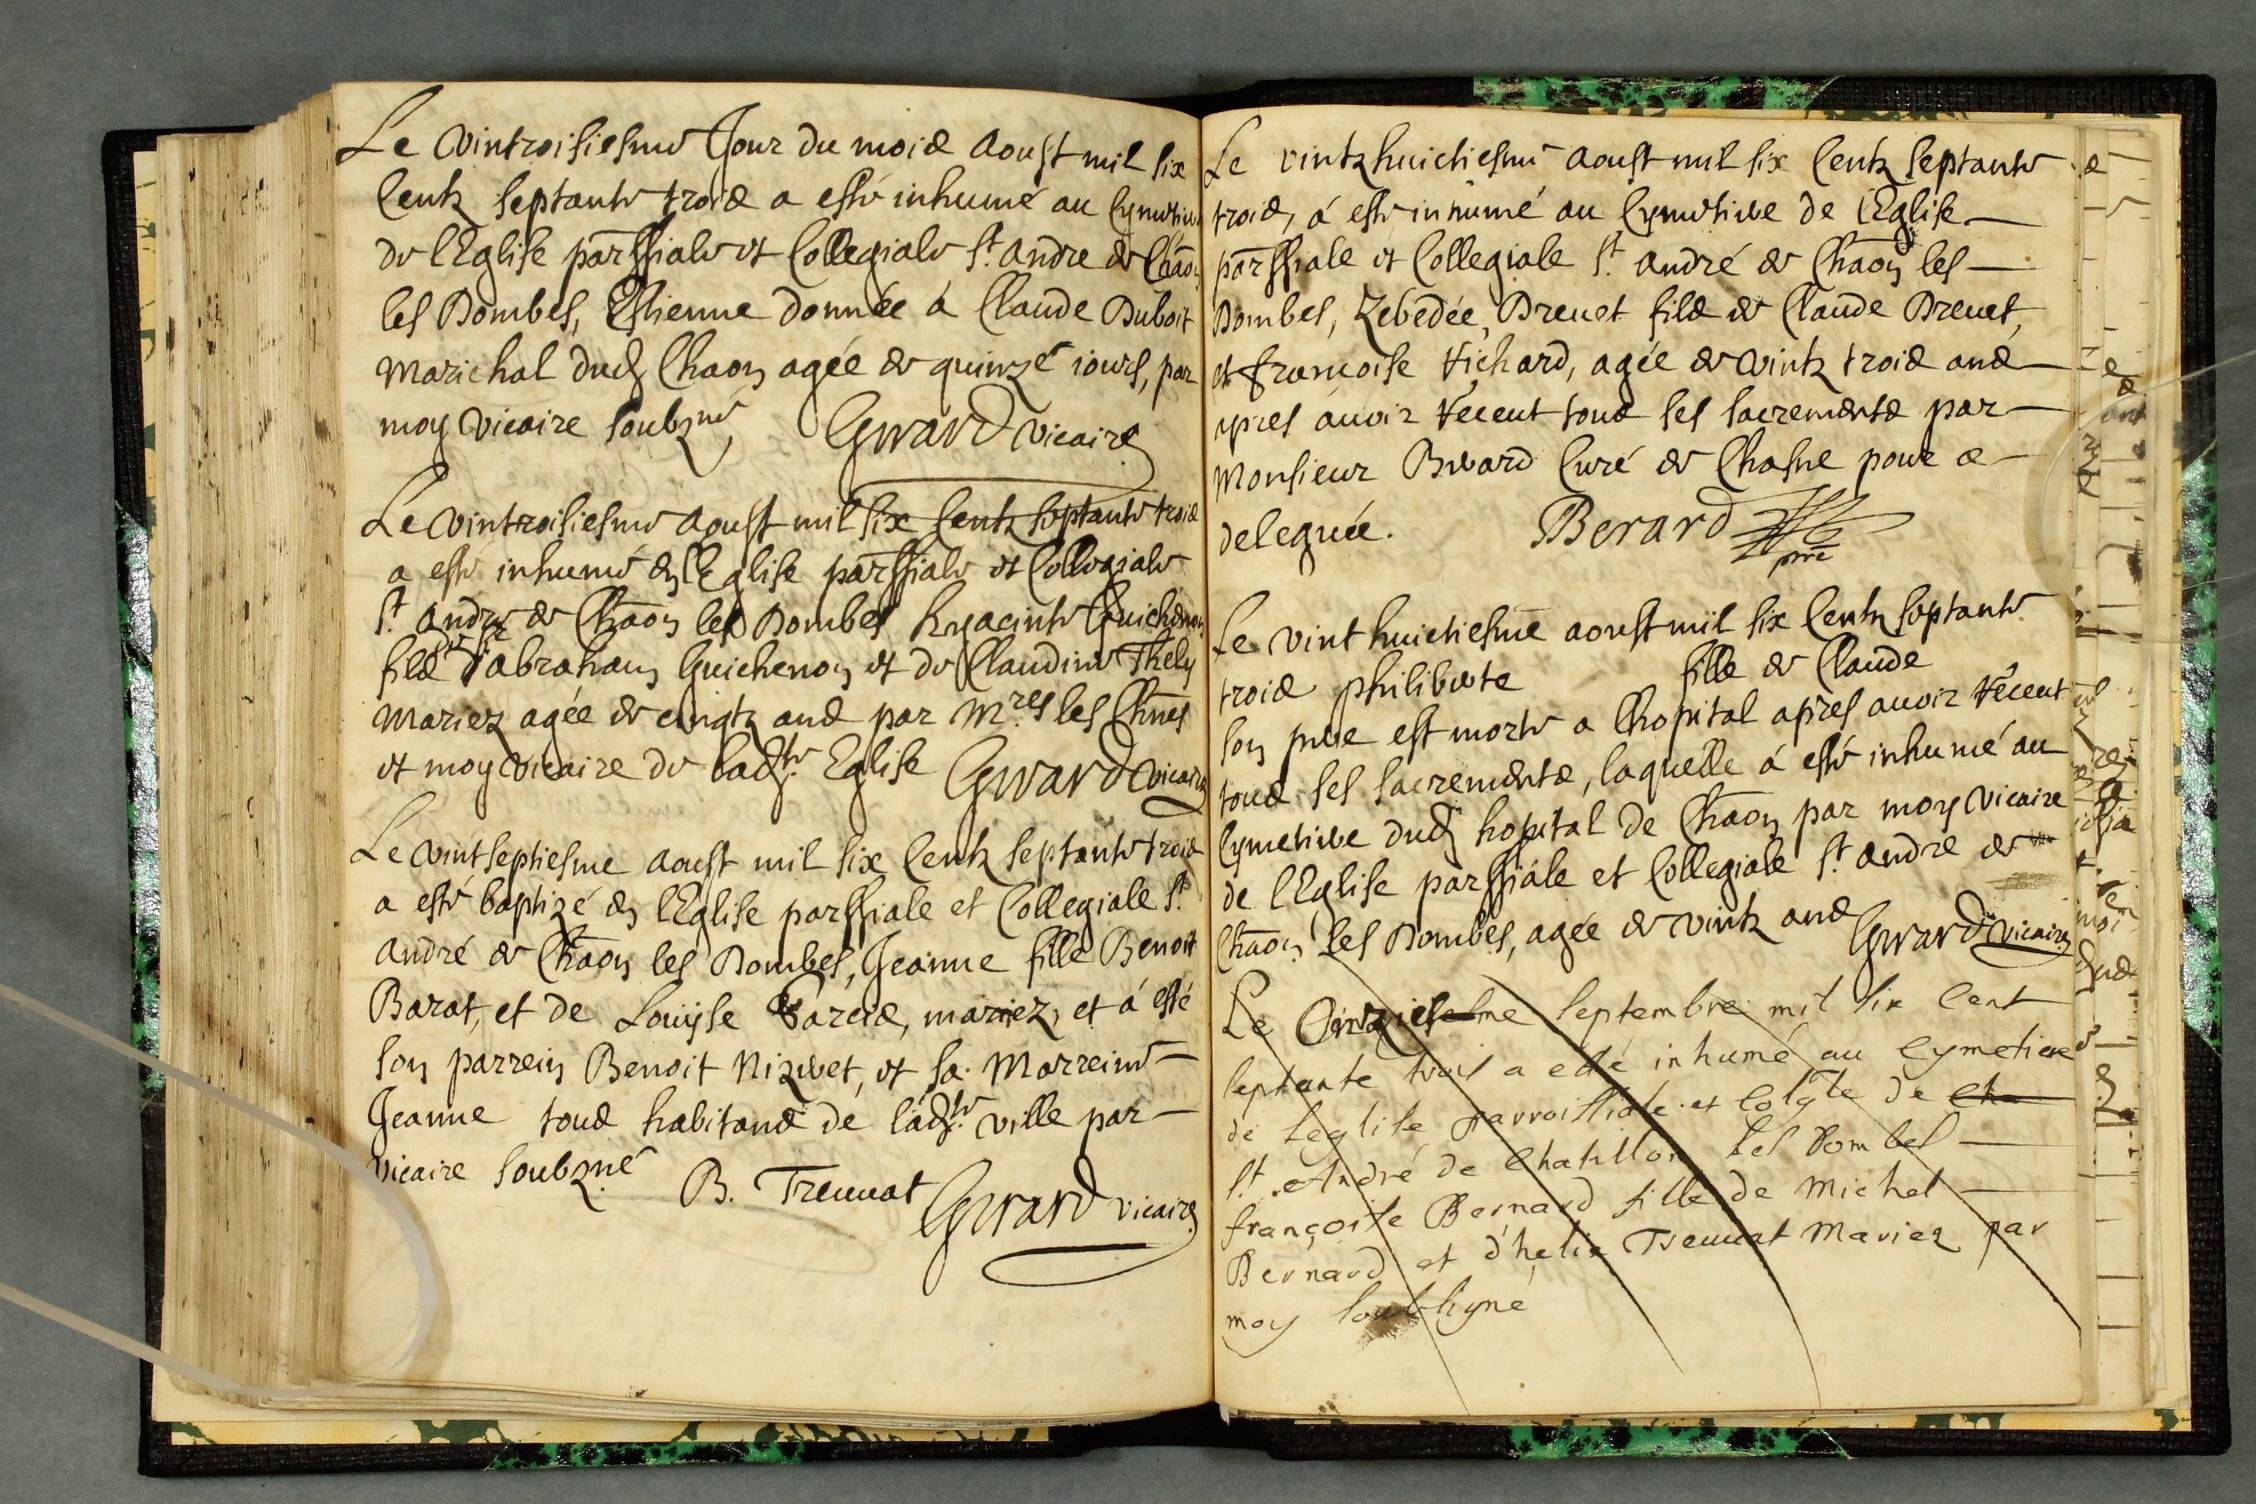 Le vintroisiesme Jour du mois Aoust mil six
Centz septante trois a esté inhumé au Cymetiere
de lEglise parssiale et Collegiale St. André de Chāon
les Dombes, Estienne donnée á Claude Duboit
Marichal dud Chāon agée de quinze iours, par
moy vicaire soubzné Girard vicaire
Le vintroisiesme Aoust mil six Centz septante trois
a esté inhumé en lEglise parssiale et Collegiale
St. André de Chāon les Dombes Hyacinte Guichenon
fils d'abraham Guichenon et de Claudine Thely
mariez agée de cinqtz ans par Mres les Chnes
et moy vicaire de ladte. Eglise Girard vicaire
Le vintseptiesme Aoust mil six Centz septante trois
a esté baptizé en lEglise parssiale et Collegiale St.
André de Chāon les Dombes, Jeanne fille Benoit
Barat, et de Louyse mariez, et á esté
son parrein Benoit Niziret, et sa Marreine
Jeanne tous habitans de ladte. ville par
vicaire soubzné B. Trennat Girard vicaire
Le vintzhuictiesme Aoust mil six Centz septante
trois, á esté inhumé au Cymetiere de lEglise
parssiale et Collegiale St. André de Chāon les
Dombes, Zebedée, Dreuet fils de Claude Dreuet,
et francoise Richard, agée de vintz trois ans
apres auoir receut tous ses sacrements par
Monsieur Berard Curé de Chasne pour ce
deleguée. Berard pre
Le vint huictiesme aoust mil six Centz septante
trois philiberte fille de Claude
son pere est morte a lhopital apres auoir receut
tous ses sacrements, laquelle á esté inhumé au
Cymetiere dud hopital de Chāon par moy vicaire
de lEglise parssiale et Collegiale St. André de
Chāon les Dombes, agée de vintz ans Girard vicaire
Le Septembre mil six Cent
septante trois a esté inhumé au Cymetiere
de leglise parroissiale et de Cha
St. André de Chatillon les Dombes
françoise Bernard fille de Michel
Bernard et d'helie Trennat Mariez par
moy soubsigné